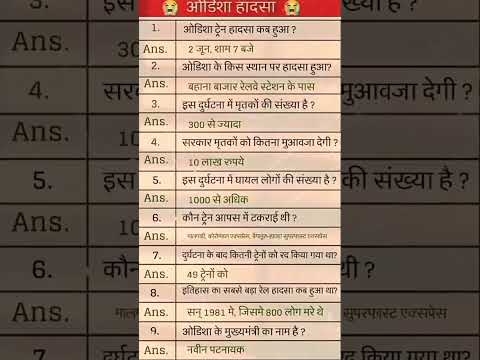 ओडिशा हादसा
1. ओडिशा ट्रेन हादसा कब हुआ ?
Ans. 2 जून, शाम 7 बजे
2. ओडिशा के किस स्थान पर हादसा हुआ?
Ans. बहाना बाजार रेलवे स्टेशन के पास
3. इस दुर्घटना में मृतकों की संख्या है ?
Ans. 300 से ज्यादा
4. सरकार मृतकों को कितना मुआवजा देगी ?
Ans. 10 लाख रुपये
5. इस दुर्घटना में घायल लोगों की संख्या है ?
Ans. 1000 से अधिक
6. कौन ट्रेन आपस में टकराई थी ?
Ans. मालगाड़ी, कोरोमंडल एक्सप्रेस, बेंगलुरु-हावड़ा सुपरफास्ट एक्सप्रेस
7. दुर्घटना के बाद कितनी ट्रेनों को रद किया गया था?
Ans. 49 ट्रेनों को
8. इतिहास का सबसे बड़ा रेल हादसा कब हुआ था?
Ans. सन् 1981 मे, जिसमे 800 लोग मरे थे
9. ओडिशा के मुख्यमंत्री का नाम है ?
Ans. नवीन पटनायक
Ans.
30
4. सरक
मुआवजा देगी ?
Ans.
10
5. इस
की संख्या है ?
Ans.
10
6. कौन
Ans. माल
सुपरफास्ट एक्सप्रेस
7.